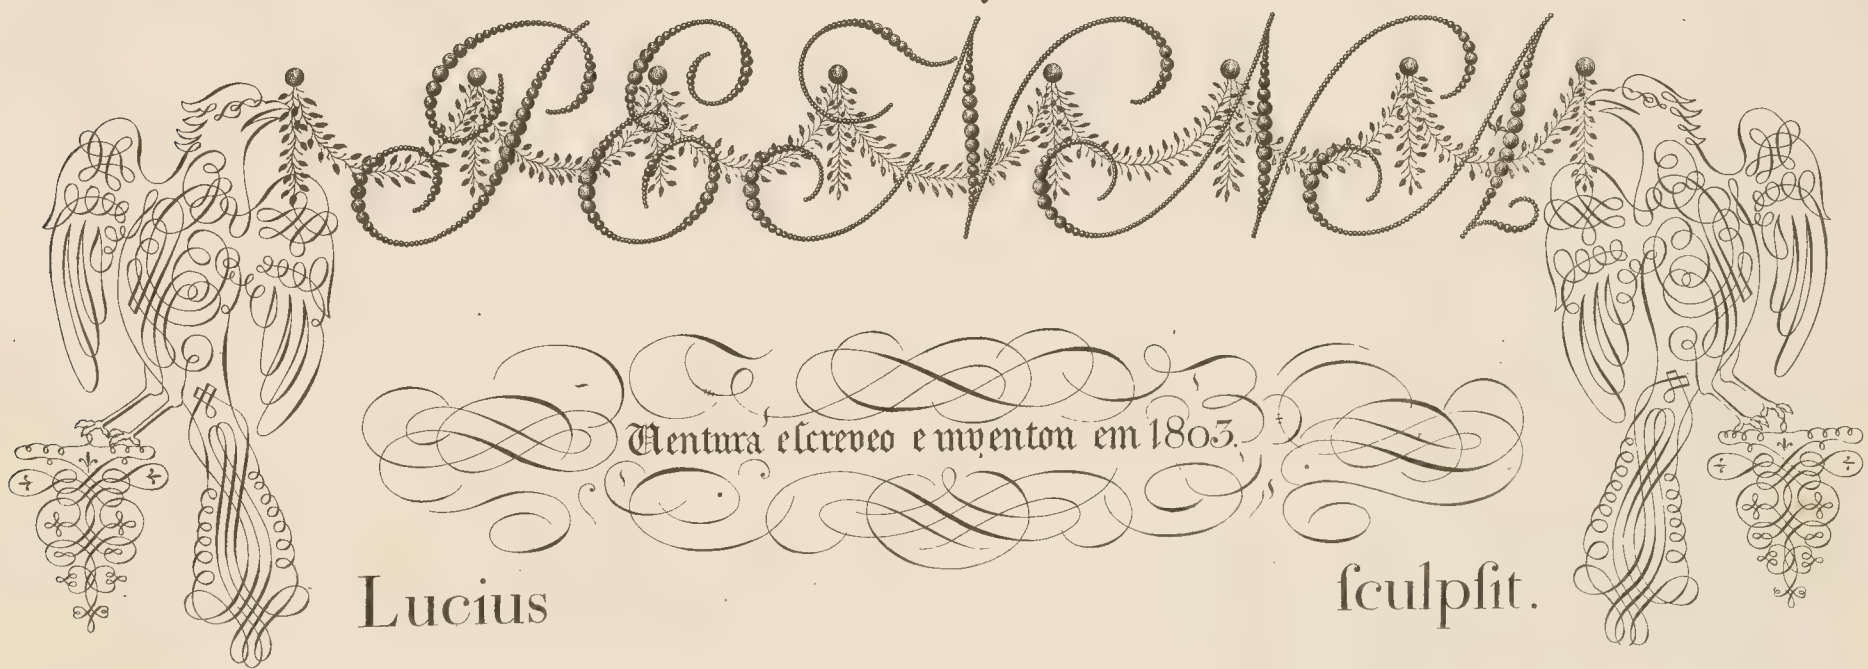 PENNA
Ventura eſcreveo e inventou em 1803.
Lucius ſculpſit.